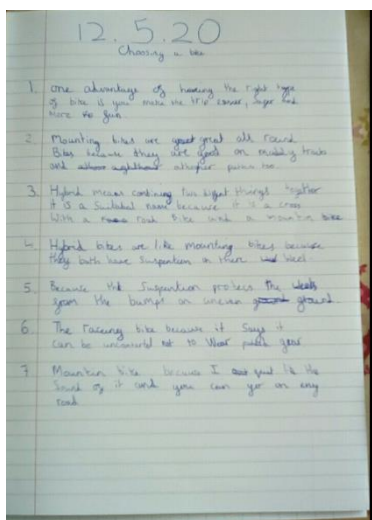 12.5.20
Choosing a bike
1. One advantage of having the right type
of bike is you make the trip easier, safer and
more fun
2. Mounting bikes are great all round
Bikes because they are good on muddy tracks
and
3. Hybrid means combining two things together
it is a name because it is a cross
With a road Bike and a mountin bike
4. Hybrid bikes are like mounting bikes because
they both have suspention on there weel
5. Because the Suspention protects the
from the bumps on uneven ground
6. The raceing bike because it Says it
can be not to Wear gear
7. Mountin bike because I like the
Sound of it and you can go on eny
road